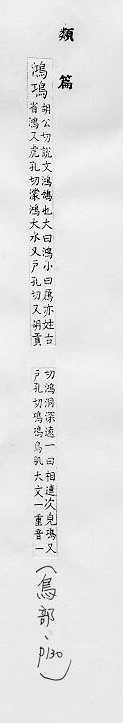 類篇
鴻鳿
胡公切說文鴻鵠也大曰鴻小曰鴈亦姓古
省鴻又虎孔切濛鴻大水又戶孔切又胡貢
切鴻洞深遠一曰相連次皃鳿又
戶孔切鳿鳿鳥肌大文一重音一
(鳥部、p130)